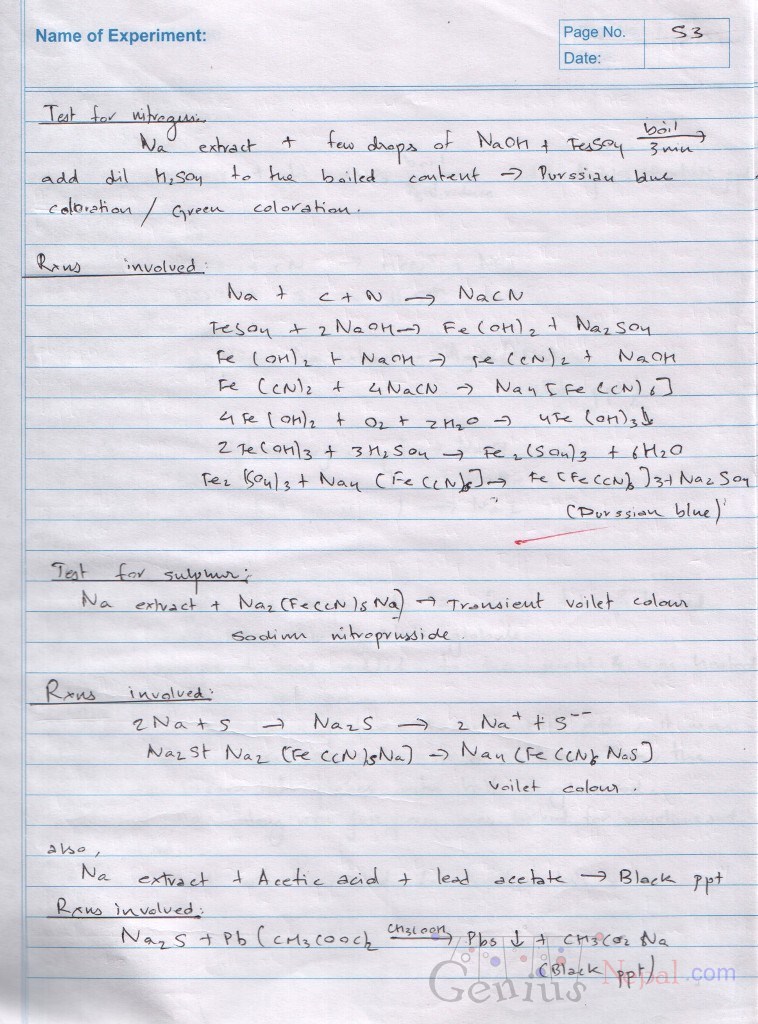 Name of Experiment:
Page No. 53
Date:
Test for nitrogen:
Na extract + few drops of NaOH + FeSO4 boil 3 min →
add dil H2SO4 to the boiled content → Purssian blue
coloration / Green coloration.
Rxns involved:
Na + C + N → NaCN
FeSO4 + 2 NaOH → Fe(OH)2 + Na2SO4
Fe(OH)2 + NaOH → Fe(CN)2 + NaOH
Fe(CN)2 + 4NaCN → Na4[Fe(CN)6]
4Fe(OH)2 + O2 + 2H2O → 4Fe(OH)3↓
2Fe(OH)3 + 3H2SO4 → Fe2(SO4)3 + 6H2O
Fe2(SO4)3 + Na4(Fe(CN)6] → Fe(Fe(CN)6]3 + Na2SO4
(Purssian blue)
Test for sulphur:
Na extract + Na2(Fe(CN)5Na) → Transient voilet colour
sodium nitroprusside.
Rxns involved:
2Na + S → Na2S → 2Na+ + S--
Na2S + Na2(Fe(CN)5Na) → Na4(Fe(CN)5NoS]
voilet colour.
also,
Na extract + Acetic acid + lead acetate → Black ppt
Rxns involved:
Na2S + Pb(CH3COOC)2 CH3COOH → PbS↓ + CH3CO2Na
(Black ppt)
Genius Nepal.com